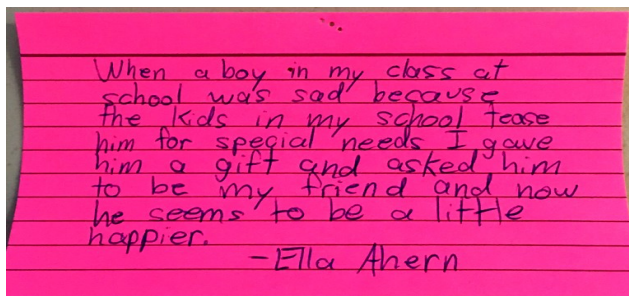 When a boy in my class at
school was sad because
the kids in my school tease
him for special needs I gave
him a gift and asked him
to be my friend and now
he seems to be a little
happier.
-Ella Ahern